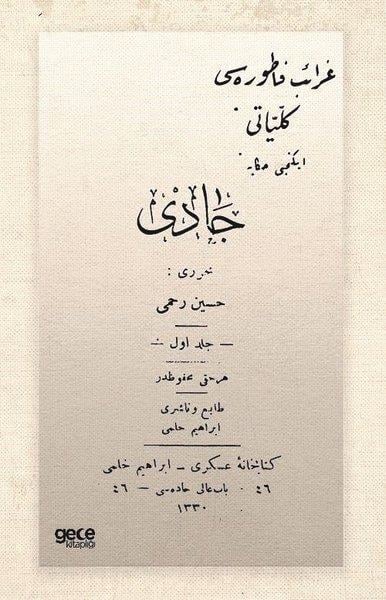 غرائب فاطوره‌سی
كلّیاتی
ایكنجی حكایه
جادی
محرری :
حسین رحمی
— جلد اول —
هر حقی محفوظدر
طابع و ناشری
ابراهیم حلمی
كتابخانهٔ عسكری – ابراهیم حلمی
٤٦ باب عالی جاده‌سی — ٤٦
١٣٣٠
gece
kitaplığı